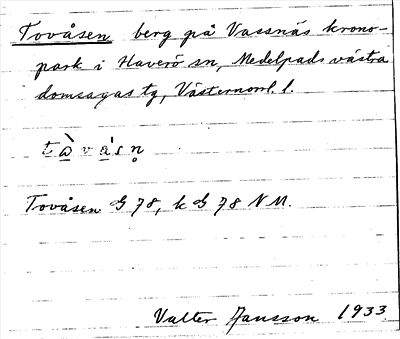 Tovåsen berg på Vassnäs krono-
park i Haverö sn, Medelpads västra
domsagas tg, Västernorrl. l.
tòvásn̥
Tovåsen G 78, k G 78 NM.
Valter Jansson 1933.